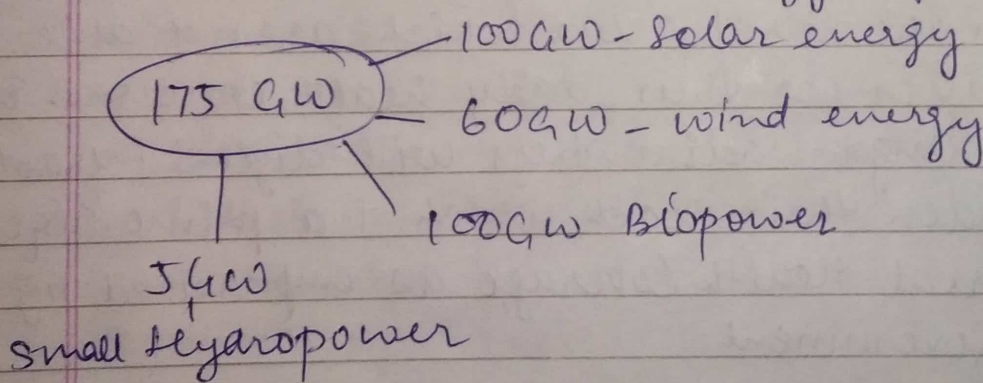 100GW - Solar energy
175 GW
60GW - wind energy
100GW Biopower
5GW
Small Hydropower